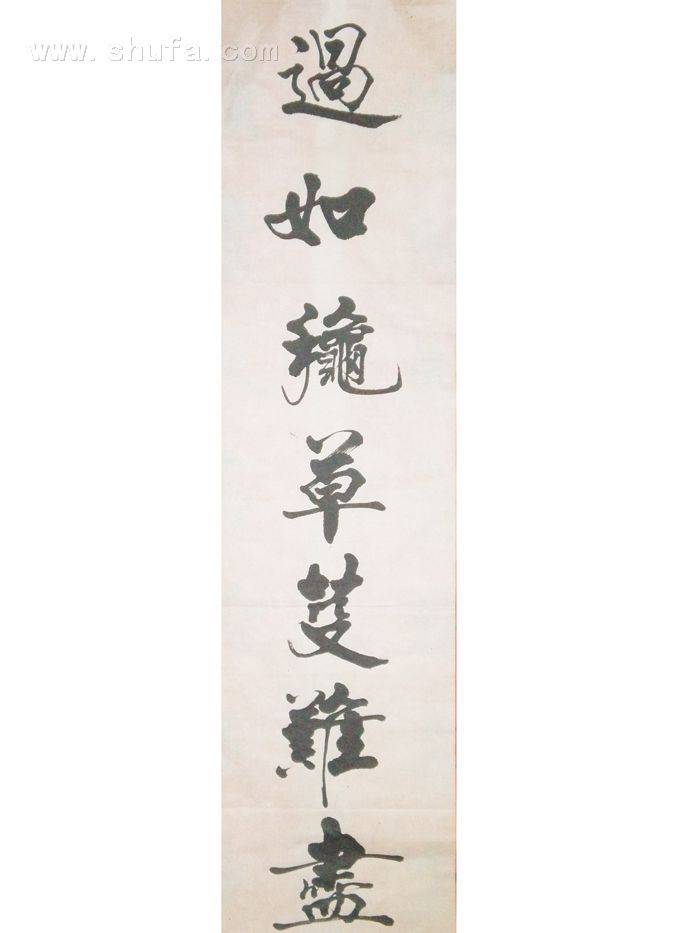 www.shufa.com
過如穐草芟難盡